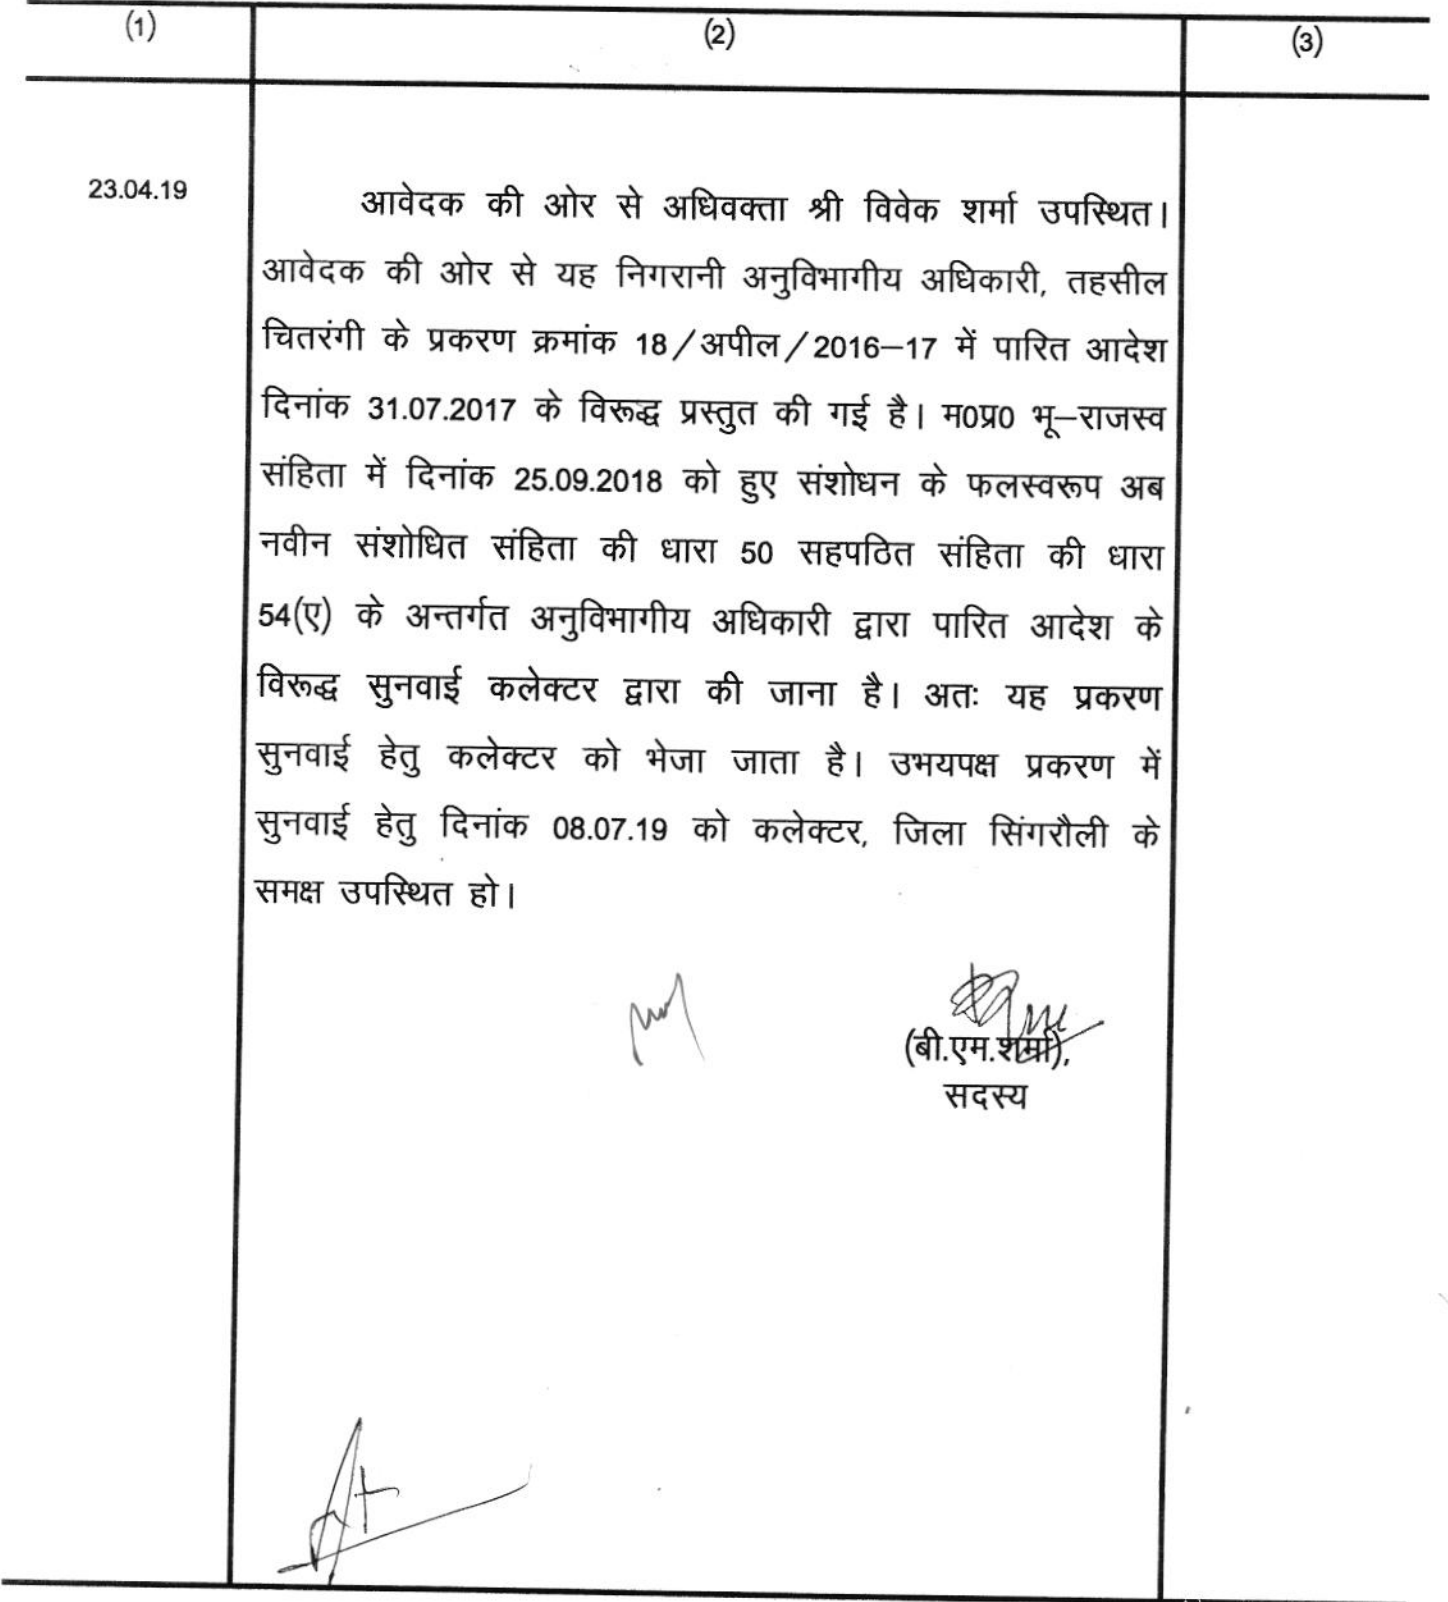 (1) (2) (3)
23.04.19 आवेदक की ओर से अधिवक्ता श्री विवेक शर्मा उपस्थित।
आवेदक की ओर से यह निगरानी अनुविभागीय अधिकारी, तहसील
चितरंगी के प्रकरण क्रमांक 18/अपील/2016–17 में पारित आदेश
दिनांक 31.07.2017 के विरूद्ध प्रस्तुत की गई है। म0प्र0 भू–राजस्व
संहिता में दिनांक 25.09.2018 को हुए संशोधन के फलस्वरूप अब
नवीन संशोधित संहिता की धारा 50 सहपठित संहिता की धारा
54(ए) के अन्तर्गत अनुविभागीय अधिकारी द्वारा पारित आदेश के
विरूद्ध सुनवाई कलेक्टर द्वारा की जाना है। अतः यह प्रकरण
सुनवाई हेतु कलेक्टर को भेजा जाता है। उभयपक्ष प्रकरण में
सुनवाई हेतु दिनांक 08.07.19 को कलेक्टर, जिला सिंगरौली के
समक्ष उपस्थित हो।
(बी.एम.शर्मा),
सदस्य